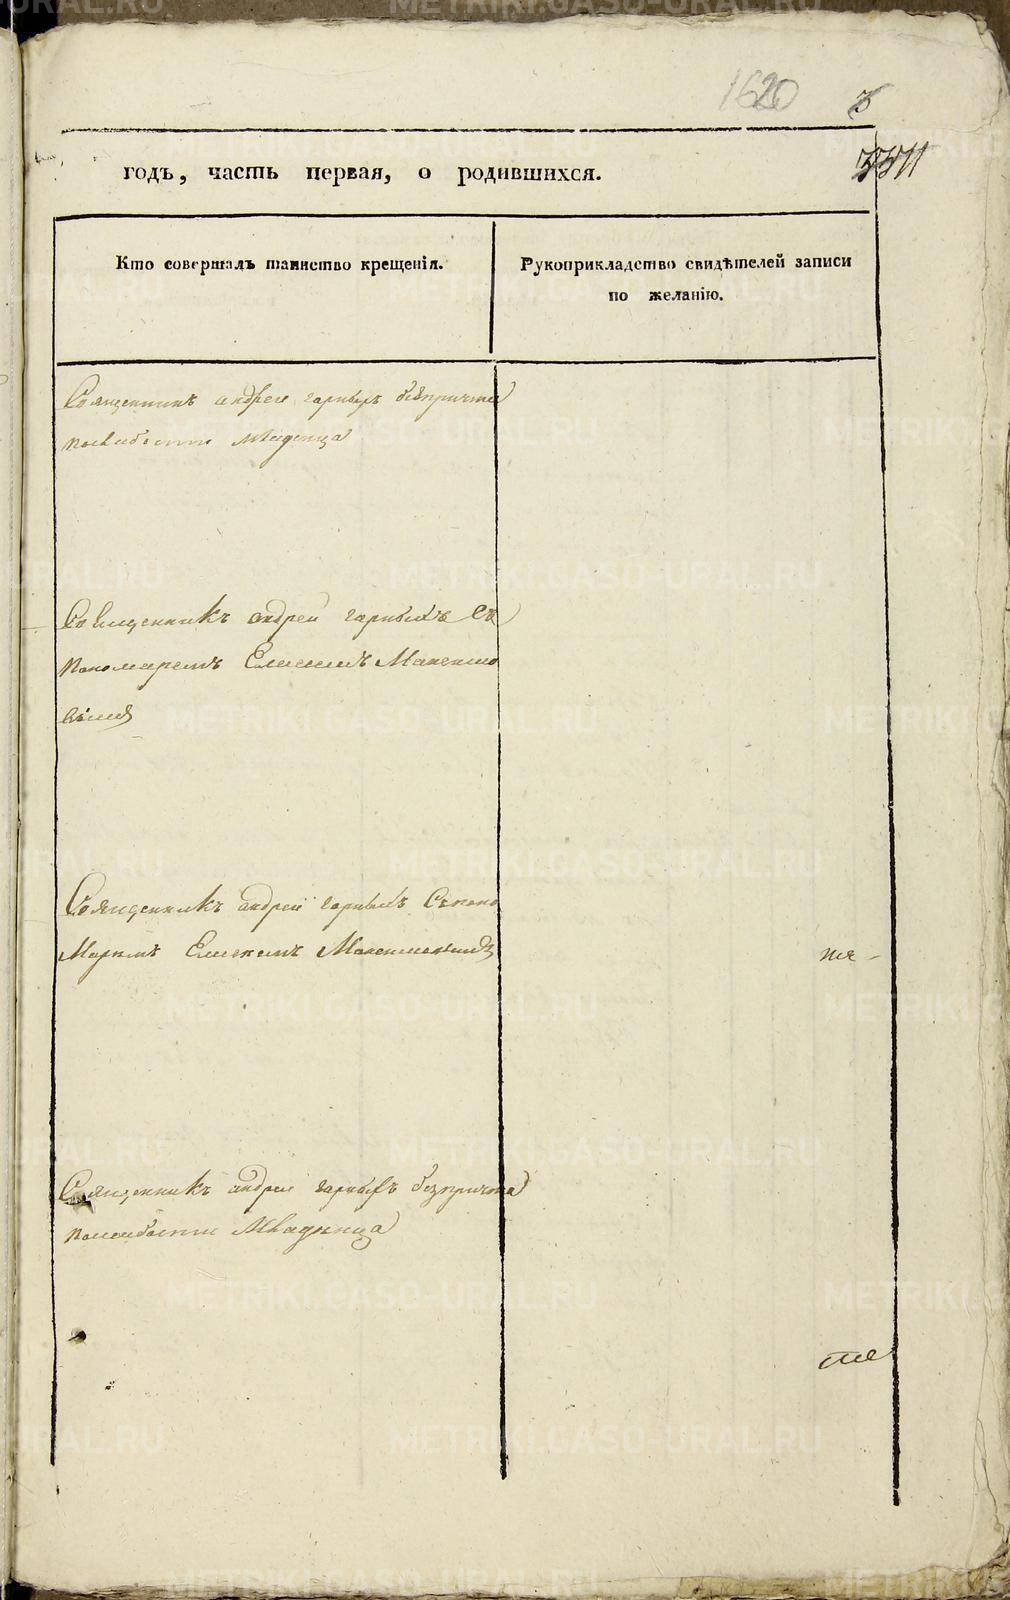 1620
годъ, часть первая, о родившихся.
Кто совершалъ таинство крещенія.
Рукоприкладство свидѣтелей записи
по желанію.
Священникъ андреи гарныхъ безпричта
послабости младенца
Священникъ андрей гарныхъ Съ
пономаремъ Елисеемъ Максимо
вымъ
Священникъ андрей гарныхъ Съпоно
Маремъ Елисеемъ Максимовымъ
Священникъ андреи гарныхъ безпричта
послабости Младенца
METRIKI.GASO-URAL.RU